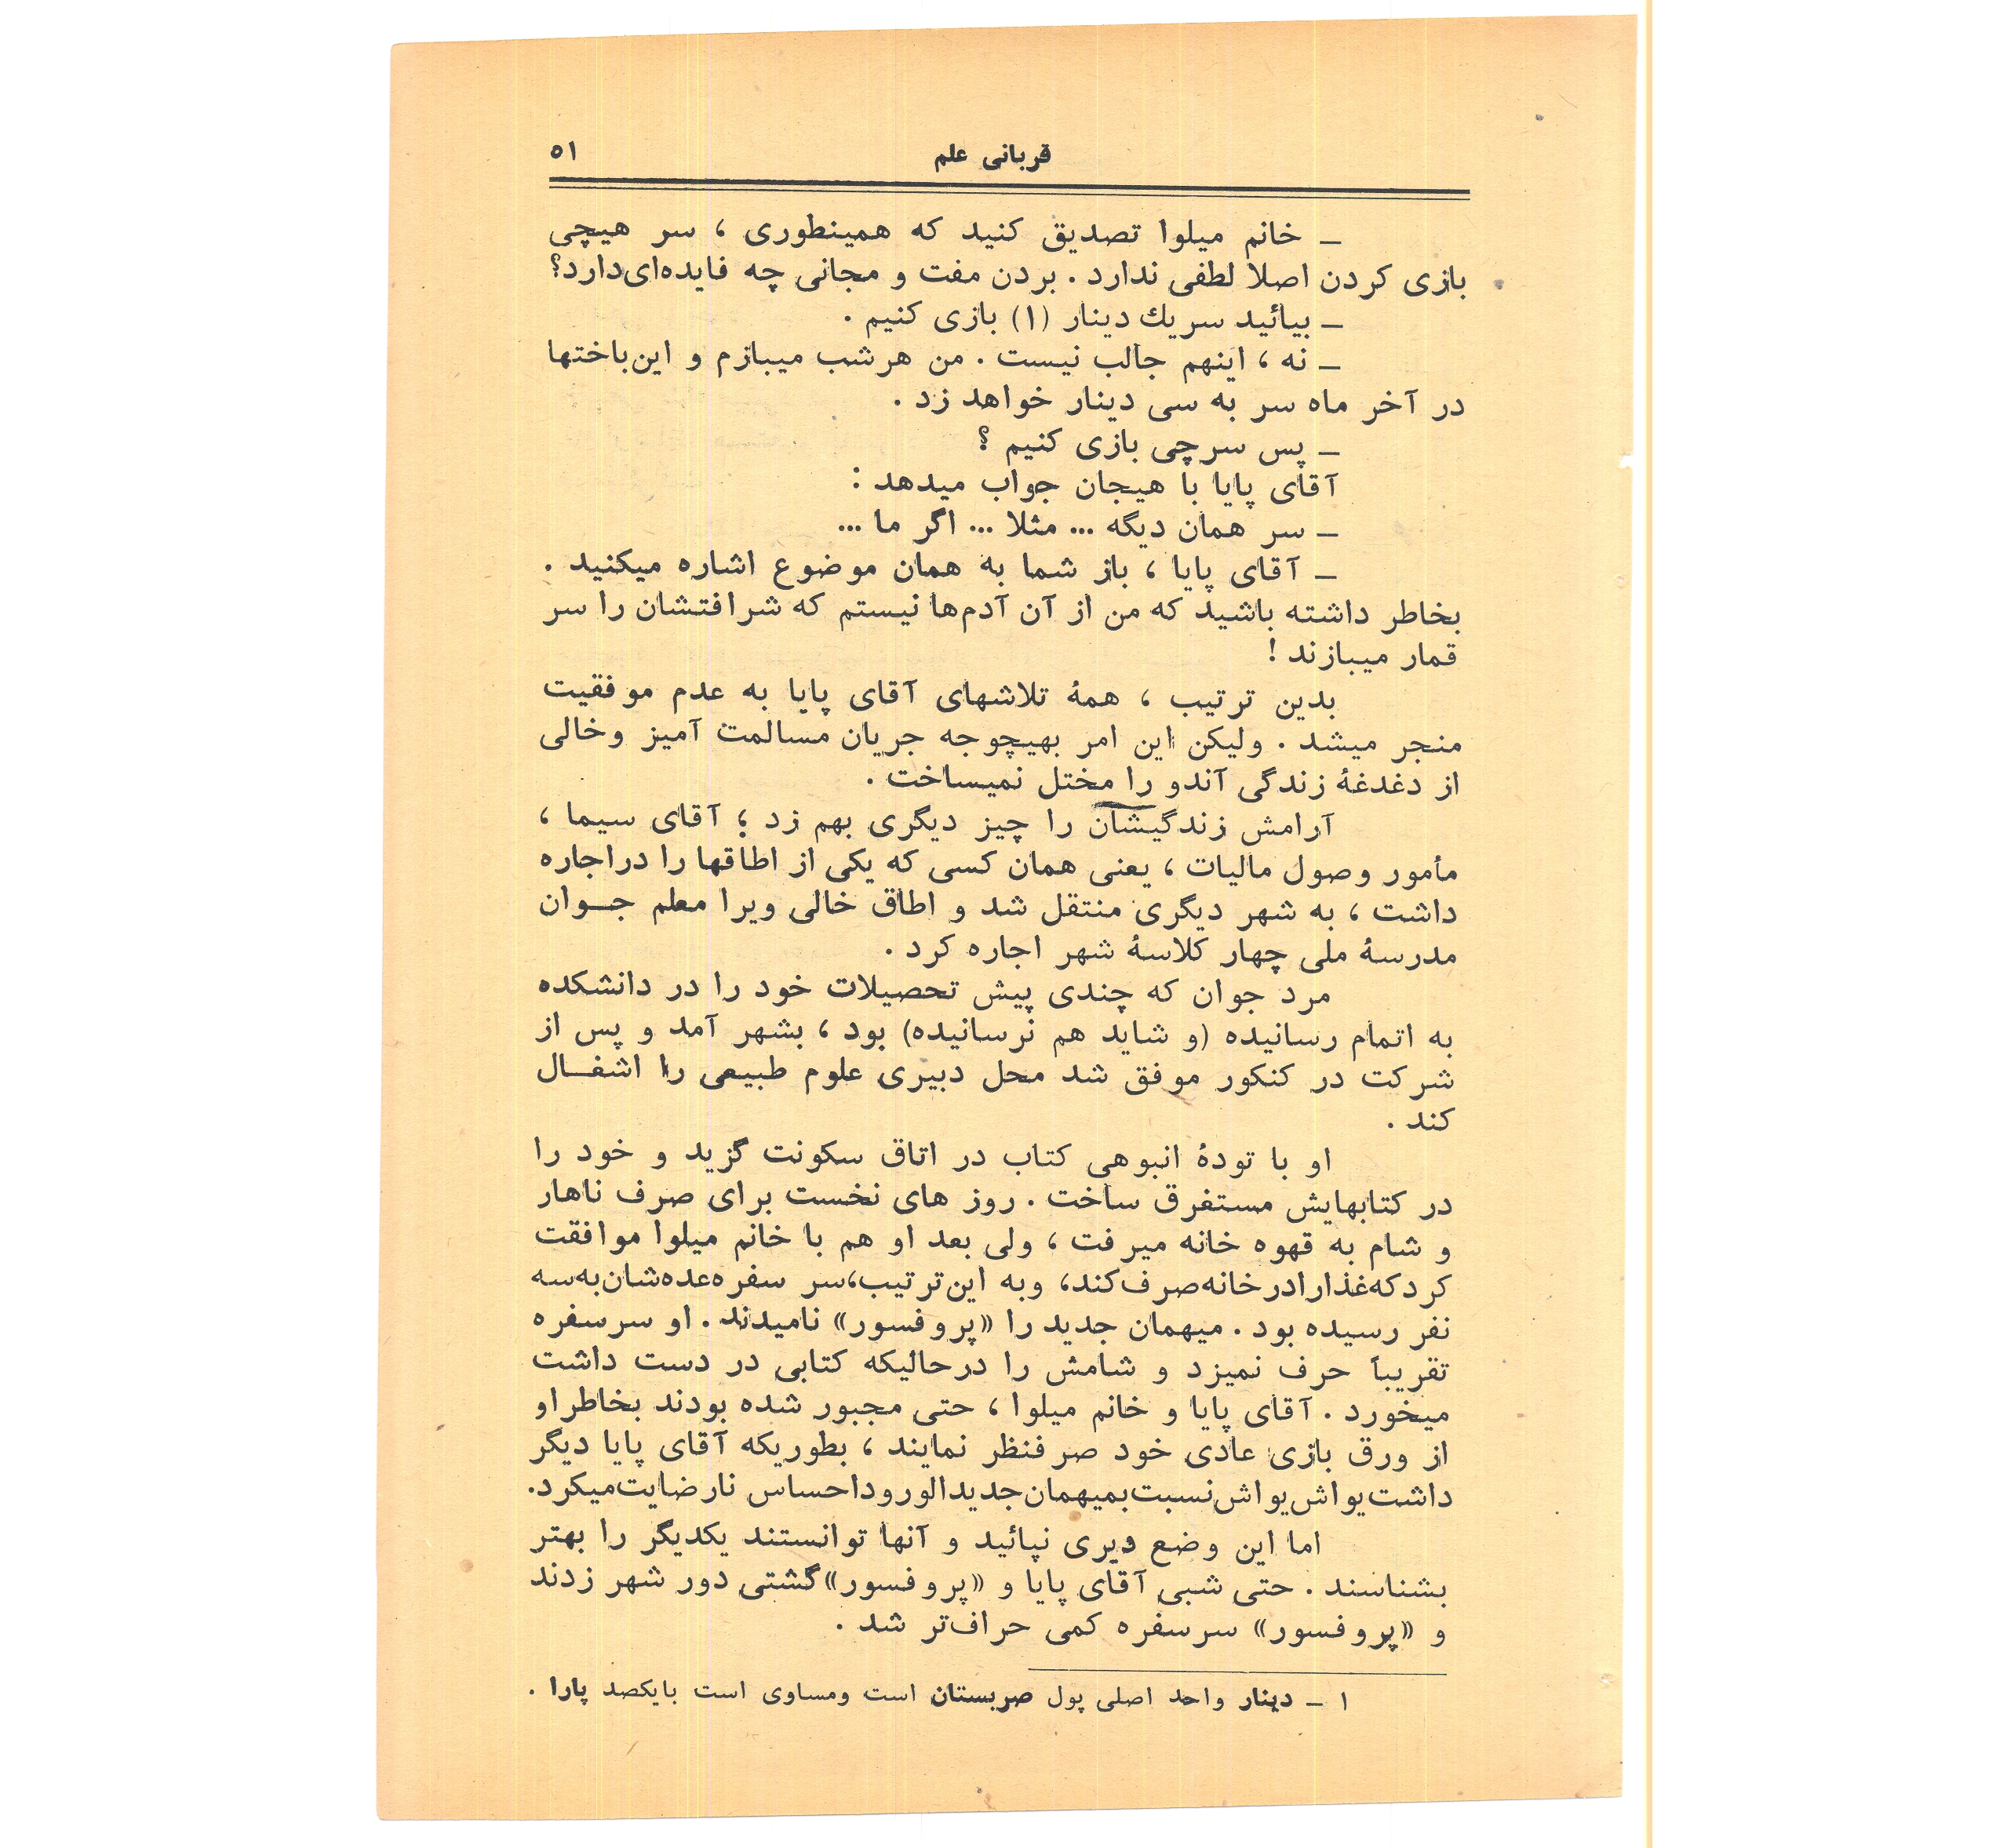 قربانی علم
۵۱
– خانم میلوا تصدیق کنید که همینطوری ، سر هیچی
بازی کردن اصلا لطفی ندارد . بردن مفت و مجانی چه فایده‌ای‌دارد؟
– بیائید سریك دینار (۱) بازی کنیم .
– نه ، اینهم جالب نیست . من هرشب میبازم و این‌باختها
در آخر ماه سر به سی دینار خواهد زد .
– پس سرچی بازی کنیم ؟
آقای پایا با هیجان جواب میدهد :
– سر همان دیگه ... مثلا ... اگر ما ...
– آقای پایا ، باز شما به همان موضوع اشاره میکنید .
بخاطر داشته باشید که من از آن آدم‌ها نیستم که شرافتشان را سر
قمار میبازند !
بدین ترتیب ، همهٔ تلاشهای آقای پایا به عدم موفقیت
منجر میشد . ولیکن این امر بهیچوجه جریان مسالمت آمیز وخالی
از دغدغهٔ زندگی آندو را مختل نمیساخت .
آرامش زندگیشان را چیز دیگری بهم زد ؛ آقای سیما ،
مأمور وصول مالیات ، یعنی همان کسی که یکی از اطاقها را دراجاره
داشت ، به شهر دیگری منتقل شد و اطاق خالی ویرا معلم جـوان
مدرسهٔ ملی چهار کلاسهٔ شهر اجاره کرد .
مرد جوان که چندی پیش تحصیلات خود را در دانشکده
به اتمام رسانیده (و شاید هم نرسانیده) بود ، بشهر آمد و پس از
شرکت در کنکور موفق شد محل دبیری علوم طبیعی را اشغـال
کند .
او با تودهٔ انبوهی کتاب در اتاق سکونت گزید و خود را
در کتابهایش مستغرق ساخت . روز های نخست برای صرف ناهار
و شام به قهوه خانه میرفت ، ولی بعد او هم با خانم میلوا موافقت
کردکه‌غذارادرخانه‌صرف‌کند، وبه این‌ترتیب،سر سفره‌عده‌شان‌به‌سه
نفر رسیده بود . میهمان جدید را «پروفسور» نامیدند . او سرسفره
تقریباً حرف نمیزد و شامش را درحالیکه کتابی در دست داشت
میخورد . آقای پایا و خانم میلوا ، حتی مجبور شده بودند بخاطراو
از ورق بازی عادی خود صرفنظر نمایند ، بطوریکه آقای پایا دیگر
داشت‌یواش‌یواش‌نسبت‌بمیهمان‌جدیدالورود‌احساس نارضایت‌میکرد.
اما این وضع دیری نپائید و آنها توانستند یکدیگر را بهتر
بشناسند . حتی شبی آقای پایا و «پروفسور» گشتی دور شهر زدند
و «پروفسور» سرسفره کمی حراف‌تر شد .
۱ – دینار واحد اصلی پول صربستان است ومساوی است بایکصد پارا .